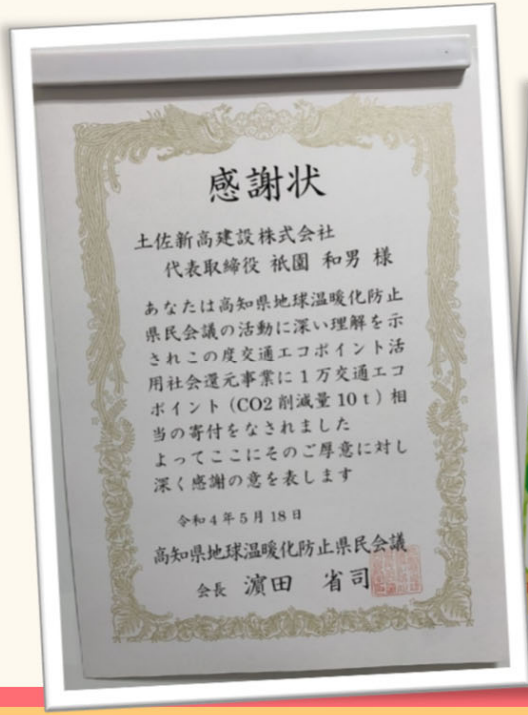 感謝状
土佐新高建設株式会社
代表取締役 祇園 和男 様
あなたは高知県地球温暖化防止
県民会議の活動に深い理解を示
されこの度交通エコポイント活
用社会還元事業に1万交通エコ
ポイント（CO2削減量10t）相
当の寄付をなされました
よってここにそのご厚意に対し
深く感謝の意を表します
令和4年5月18日
高知県地球温暖化防止県民会議
会長 濵田 省司